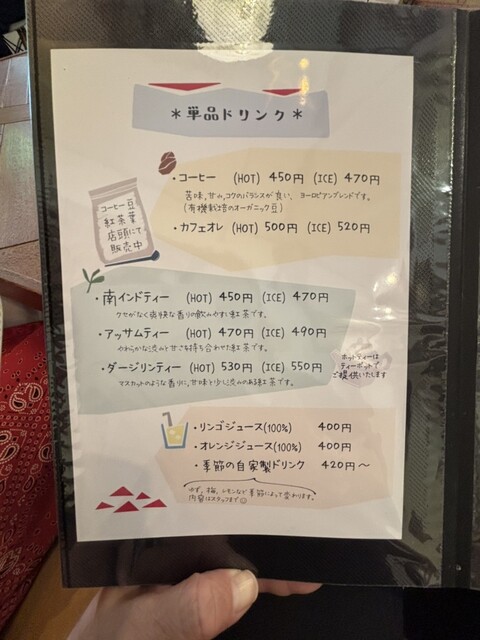 ＊単品ドリンク＊
・コーヒー (HOT) 450円 (ICE) 470円
苦味、甘み、コクのバランスが良い、ヨーロピアンブレンドです。
(有機栽培のオーガニック豆)
・カフェオレ (HOT) 500円 (ICE) 520円
コーヒー豆
紅茶葉
店頭にて
販売中
・南インドティー (HOT) 450円 (ICE) 470円
クセがなく爽快な香りの飲みやすい紅茶です。
・アッサムティー (HOT) 470円 (ICE) 490円
やわらかな渋みと甘さを持ち合わせた紅茶です。
・ダージリンティー (HOT) 530円 (ICE) 550円
マスカットのような香りに、甘味と少し渋みのある紅茶です。
ホットティーは
ティーポットで
ご提供いたします
・リンゴジュース(100%) 400円
・オレンジジュース(100%) 400円
・季節の自家製ドリンク 420円〜
ゆず、梅、レモンなど季節によって変わります。
内容はスタッフまで☺